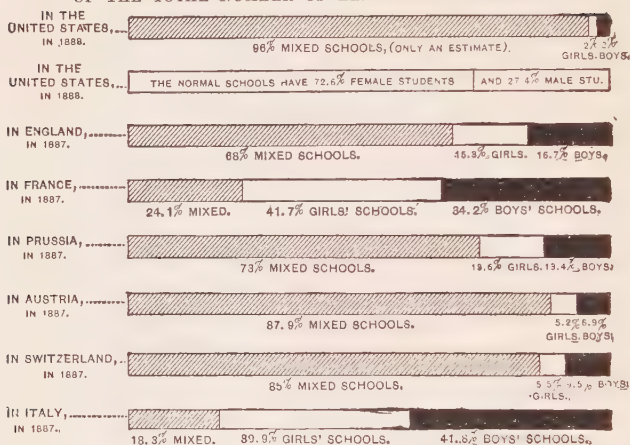 OF THE TOTAL NUMBER OF
IN THE
UNITED STATES,
IN 1888.
96% MIXED SCHOOLS, (ONLY AN ESTIMATE).
2% 2%
GIRLS. BOYS.
IN THE
UNITED STATES,
IN 1888.
THE NORMAL SCHOOLS HAVE 72.6% FEMALE STUDENTS
AND 27.4% MALE STU.
IN ENGLAND,
IN 1887.
68% MIXED SCHOOLS.
15.3% GIRLS.
16.7% BOYS.
IN FRANCE,
IN 1887.
24.1% MIXED.
41.7% GIRLS' SCHOOLS.
34.2% BOYS' SCHOOLS.
IN PRUSSIA,
IN 1887.
73% MIXED SCHOOLS.
13.6% GIRLS. 13.4% BOYS
IN AUSTRIA,
IN 1887.
87.9% MIXED SCHOOLS.
5.2% 6.9%
GIRLS. BOYS
IN SWITZERLAND,
IN 1887.
85% MIXED SCHOOLS.
5.5% 9.5% BOYS
GIRLS.
IN ITALY,
IN 1887.
18.3% MIXED.
39.9% GIRLS' SCHOOLS.
41.8% BOYS' SCHOOLS.